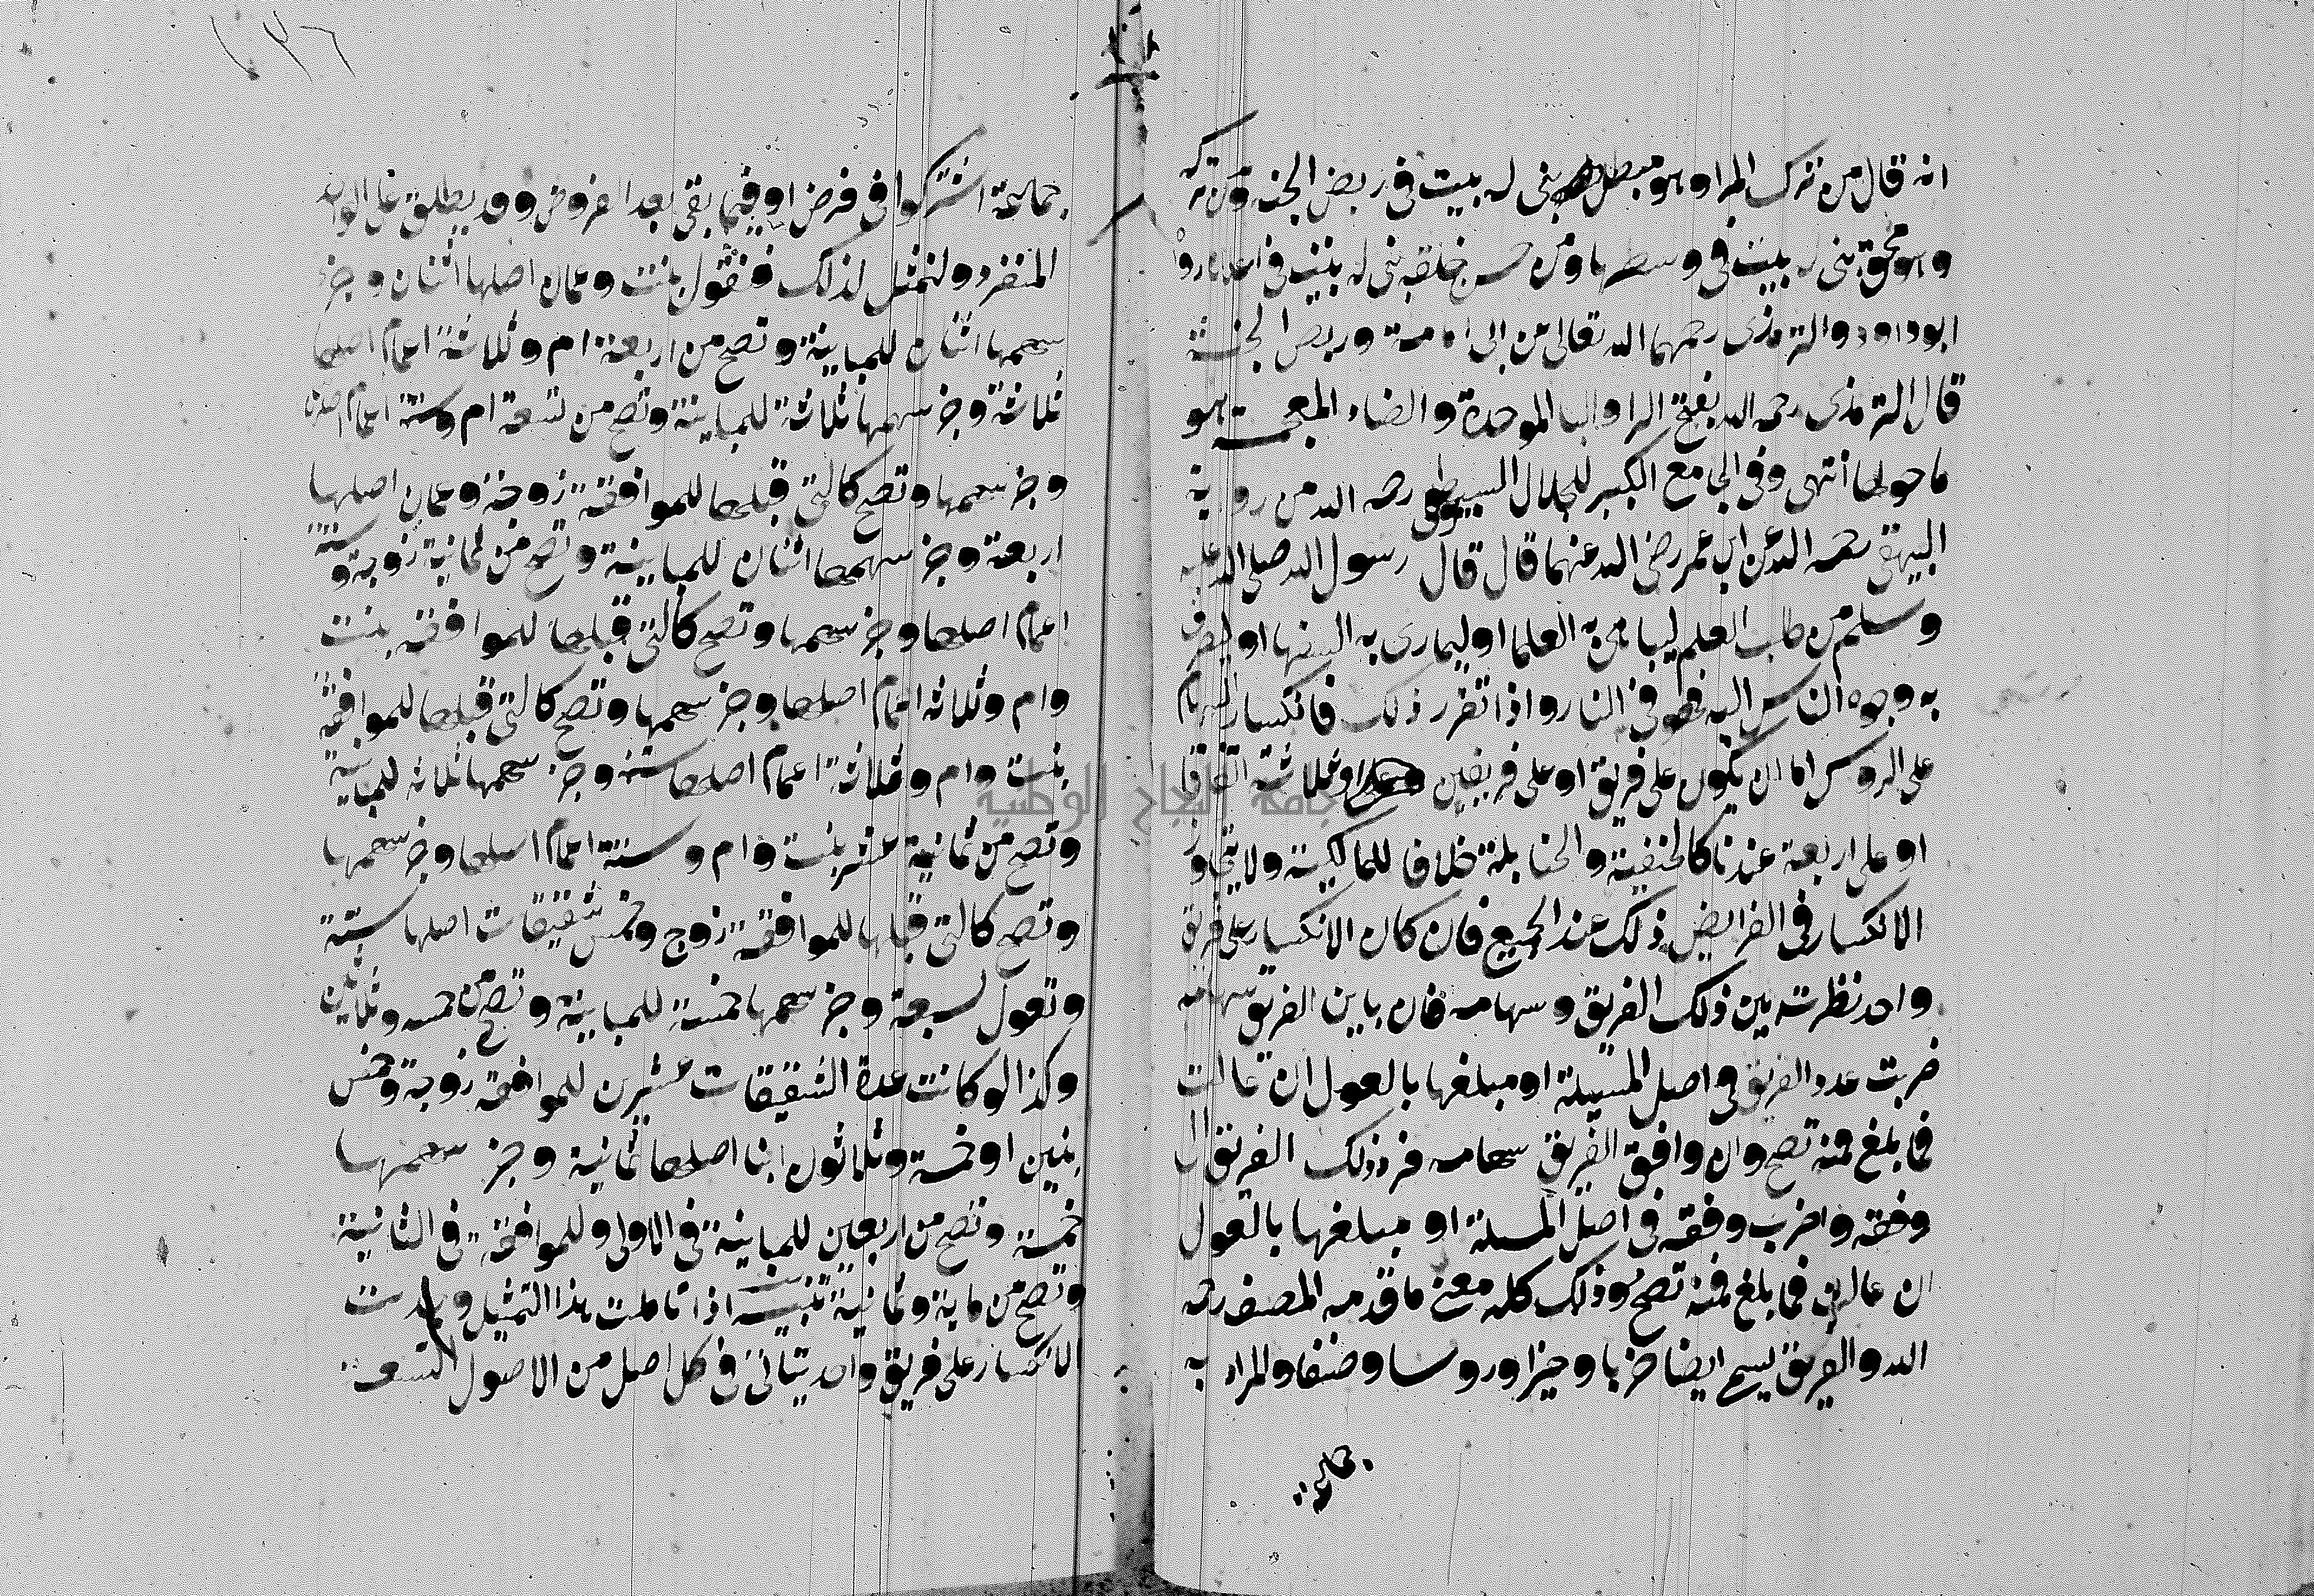 انه قال من ترك المرا وهو مبطل بنى له بيت فى ربض الجنه ومن تركه
وهو محق بنى له بيت فى وسطها ومن حسن خلقه بنى له بيت فى اعلاه رواه
ابو داود والترمذى رحمهما الله تعالى عن ابى امامة وربض الجنة
قال الترمذى رحمه الله بفتح الرا والبا الموحدة والضاد المعجمة هو
ما حولها انتهى وفى الجامع الكبير للجلال السيوطى رحمه الله من رواية
البيهقى رحمه الله عن ابن عمر رضى الله عنهما قال قال رسول الله صلى الله عليه
وسلم من طلب العلم ليباهى به العلما او ليمارى به السفها او ليصرف
به وجوه الناس اليه فهو فى النار واذا تقرر ذلك فانكسار السهام
على الروس اما ان يكون على فريق او على فريقين او ثلاثة اتفاقا
او على اربعة عندنا كالحنفية والحنابلة خلافا للمالكية ولا يتجاوز
الانكسار فى الفرايض ذلك عند الجميع فان كان الانكسار على فريق
واحد نظرت بين ذلك الفريق وسهامه فان باين الفريق سهامه
ضربت عدد الفريق فى اصل المسيلة او مبلغها بالعول ان عالت
فما بلغ فمنه تصح وان وافق الفريق سهامه فرد ذلك الفريق الى
وفقه واضرب وفقه فى اصل المسلة او مبلغها بالعول
ان عالت فما بلغ فمنه تصح وذلك كله معنى ما قدمه المصنف رحمه
الله والفريق يسمى ايضا حزبا وحيزا وروسا وصنفا والمراد به
جماعة
١٣٦
جماعة اشتركوا فى فرض او فيما بقى بعد الفروض وقد يطلق على الواحد
المنفرد ولنمثل لذلك فنقول بنت وعمان اصلها اثنان وجز
سهمها اثنان للمباينة وتصح من اربعة ام وثلاثة اعمام اصلها
ثلاثة وجز سهمها ثلاثة للمباينة وتصح من تسعة ام وستة اعمام اصلها
وجز سهمها وتصح كالتى قبلها للموافقة زوجة وعمان اصلها
اربعة وجز سهمها اثنان للمباينة وتصح من ثمانية زوجة وستة
اعمام اصلها وجز سهمها وتصح كالتى قبلها للموافقه بنت
وام وثلاثه اعمام اصلها وجز سهمها وتصح كالتى قبلها للموافقة
بنت وام وثلاثة اعمام اصلها ستة وجز سهمها ثلاثه للمباينة
وتصح من ثمانية عشر بنت وام وستة اعمام اصلها وجز سهمها
وتصح كالتى قبلها للموافقة زوج وخمس شقيقات اصلها ستة
وتعول لسبعة وجز سهمها خمسة للمباينة وتصح من خمسه وثلاثين
وكذا لو كانت عدة الشقيقات عشرين للموافقه زوجة وخمس
بنين او خمسة وثلاثون ابنا اصلها ثمانية وجز سهمها
خمسة وتصح من اربعين للمباينة فى الاولى وللموافقة فى الثانية
وتصح من ماية وثمانية تنبيه اذا تاملت هذا التمثيل وجدت
الانكسار على فريق واحد يتاتى فى كل اصل من الاصول التسعة
جامعة النجاح الوطنية